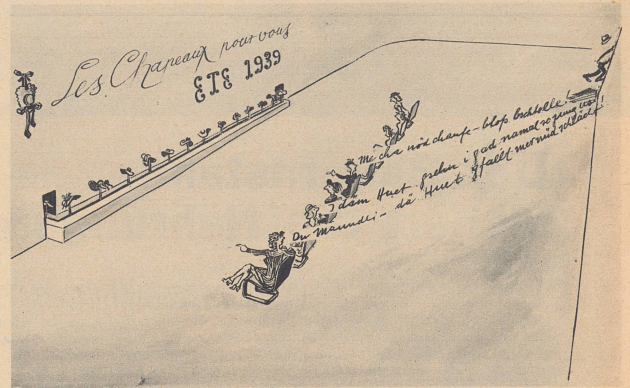 Les Chapeaux pour vous
ÉTÉ 1939
Me cha nöd chaufe – blos bschtelle!
I däm Huet gsehn i grad namal so jung us!
Du Manndli – dä Huet gfallt mer nüd schlächt!